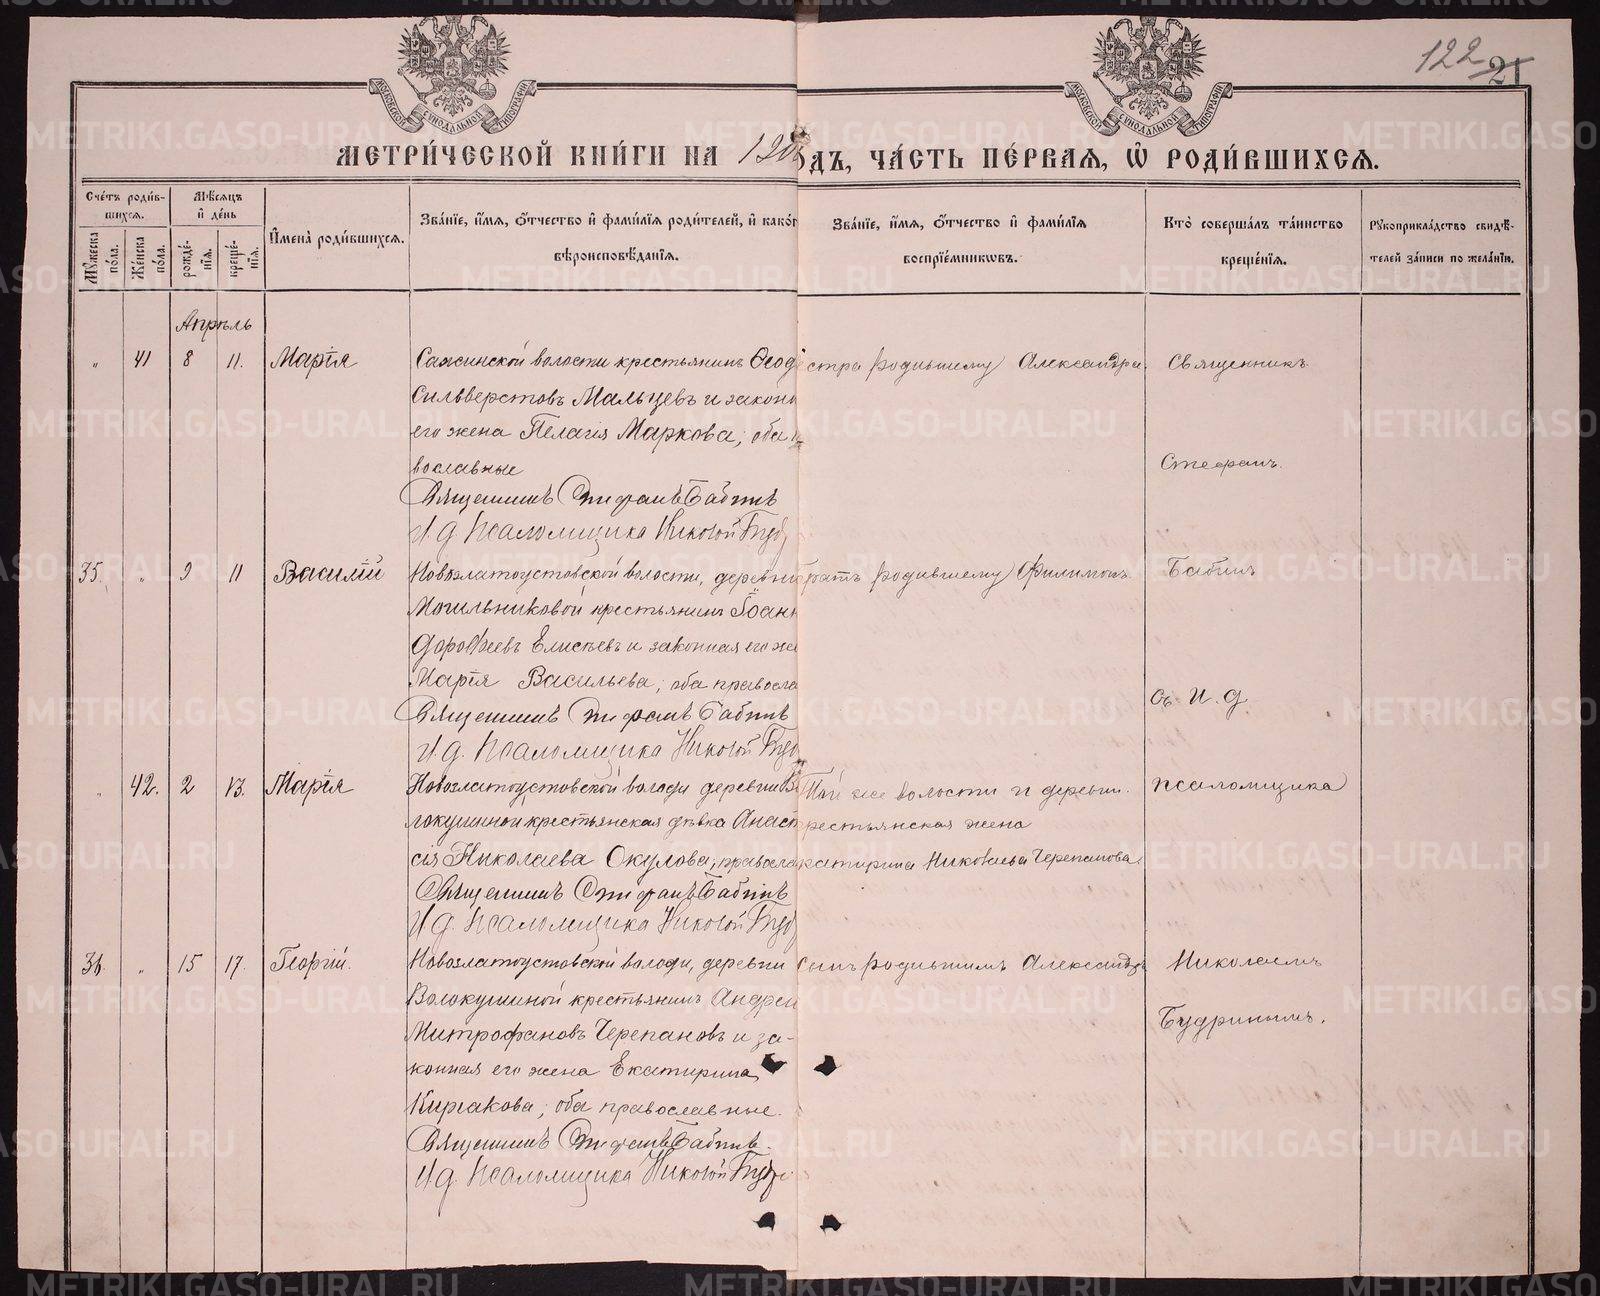 122
21
МОСКОВСКОЙ СѴНОДАЛЬНОЙ ТИПОГРАФІИ
МОСКОВСКОЙ СѴНОДАЛЬНОЙ ТИПОГРАФІИ
МЕТРИ́ЧЕСКОЙ КНИ́ГИ НА 190 ОДЪ, ЧА́СТЬ ПЕ́РВАЯ, Ѡ РОДИ́ВШИХСЯ.
Сче́тъ роди́в-
шихся.
Мѣ́сяцъ
и де́нь
Мꙋ́жеска по́ла.
Же́нска по́ла.
рожде́-
нїя.
креще́-
нїя.
И҆мена̀ роди́вшихся.
Зва́нїе, и҆́мя, ѻ҆́тчество и҆ фами́лїя роди́телей, и҆ како́г
вѣроисповѣ́данїя.
Зва́нїе, и҆́мя, ѻ҆́тчество и҆ фами́лїя
воспрїе́мникѡвъ.
Кто̀ соверша́лъ та́инство
креще́нїя.
Рꙋкоприкла́дство свидѣ́-
телей за́писи по жела́нїю.
Апрѣль
„ 41 8 11. Марія
Сажинской волости крестьянинъ Ѳеод
Сильверстовъ Мальцевъ и законн
его жена Пелагія Маркова; оба п
вославные
Священникъ Стефанъ Бабинъ
И. д. Псаломщика Николай Буд
сестра родившему Александра
Священникъ
Стефанъ
35. „ 9 11 Василій
Новозлатоустовской волости, деревни
Могильниковой крестьянинъ Іоанн
Дороѳеевъ Елисѣевъ и законная его же
Марія Васильева; оба правосла
Священникъ Стефанъ Бабинъ
И. д. Псаломщика Николай Буд
братъ родившему Филимонъ
Бабинъ
Съ И. д
„ 42. 2 13. Марія
Новозлатоустовской волости деревни Во
локушиной крестьянская дѣвка Анаст
сія Николаева Окулова, правосла
Священникъ Стефанъ Бабинъ
И. д. Псаломщика Николай Буд
Той же волости и деревни
крестьянская жена
катирина Николаева Черепанова
псаломщика
36. „ 15 17. Георгій.
Новозлатоустовской волости, деревни
Волокушиной крестьянинъ Андрей
Митрофановъ Черепановъ и за-
конная его жена Екатирина
Киргакова; оба православные.
Священникъ Стефанъ Бабинъ
И. д. Псаломщика Николай Будри
Сынъ родившимъ Александръ
Николаемъ
Будринымъ.
METRIKI.GASO-URAL.RU